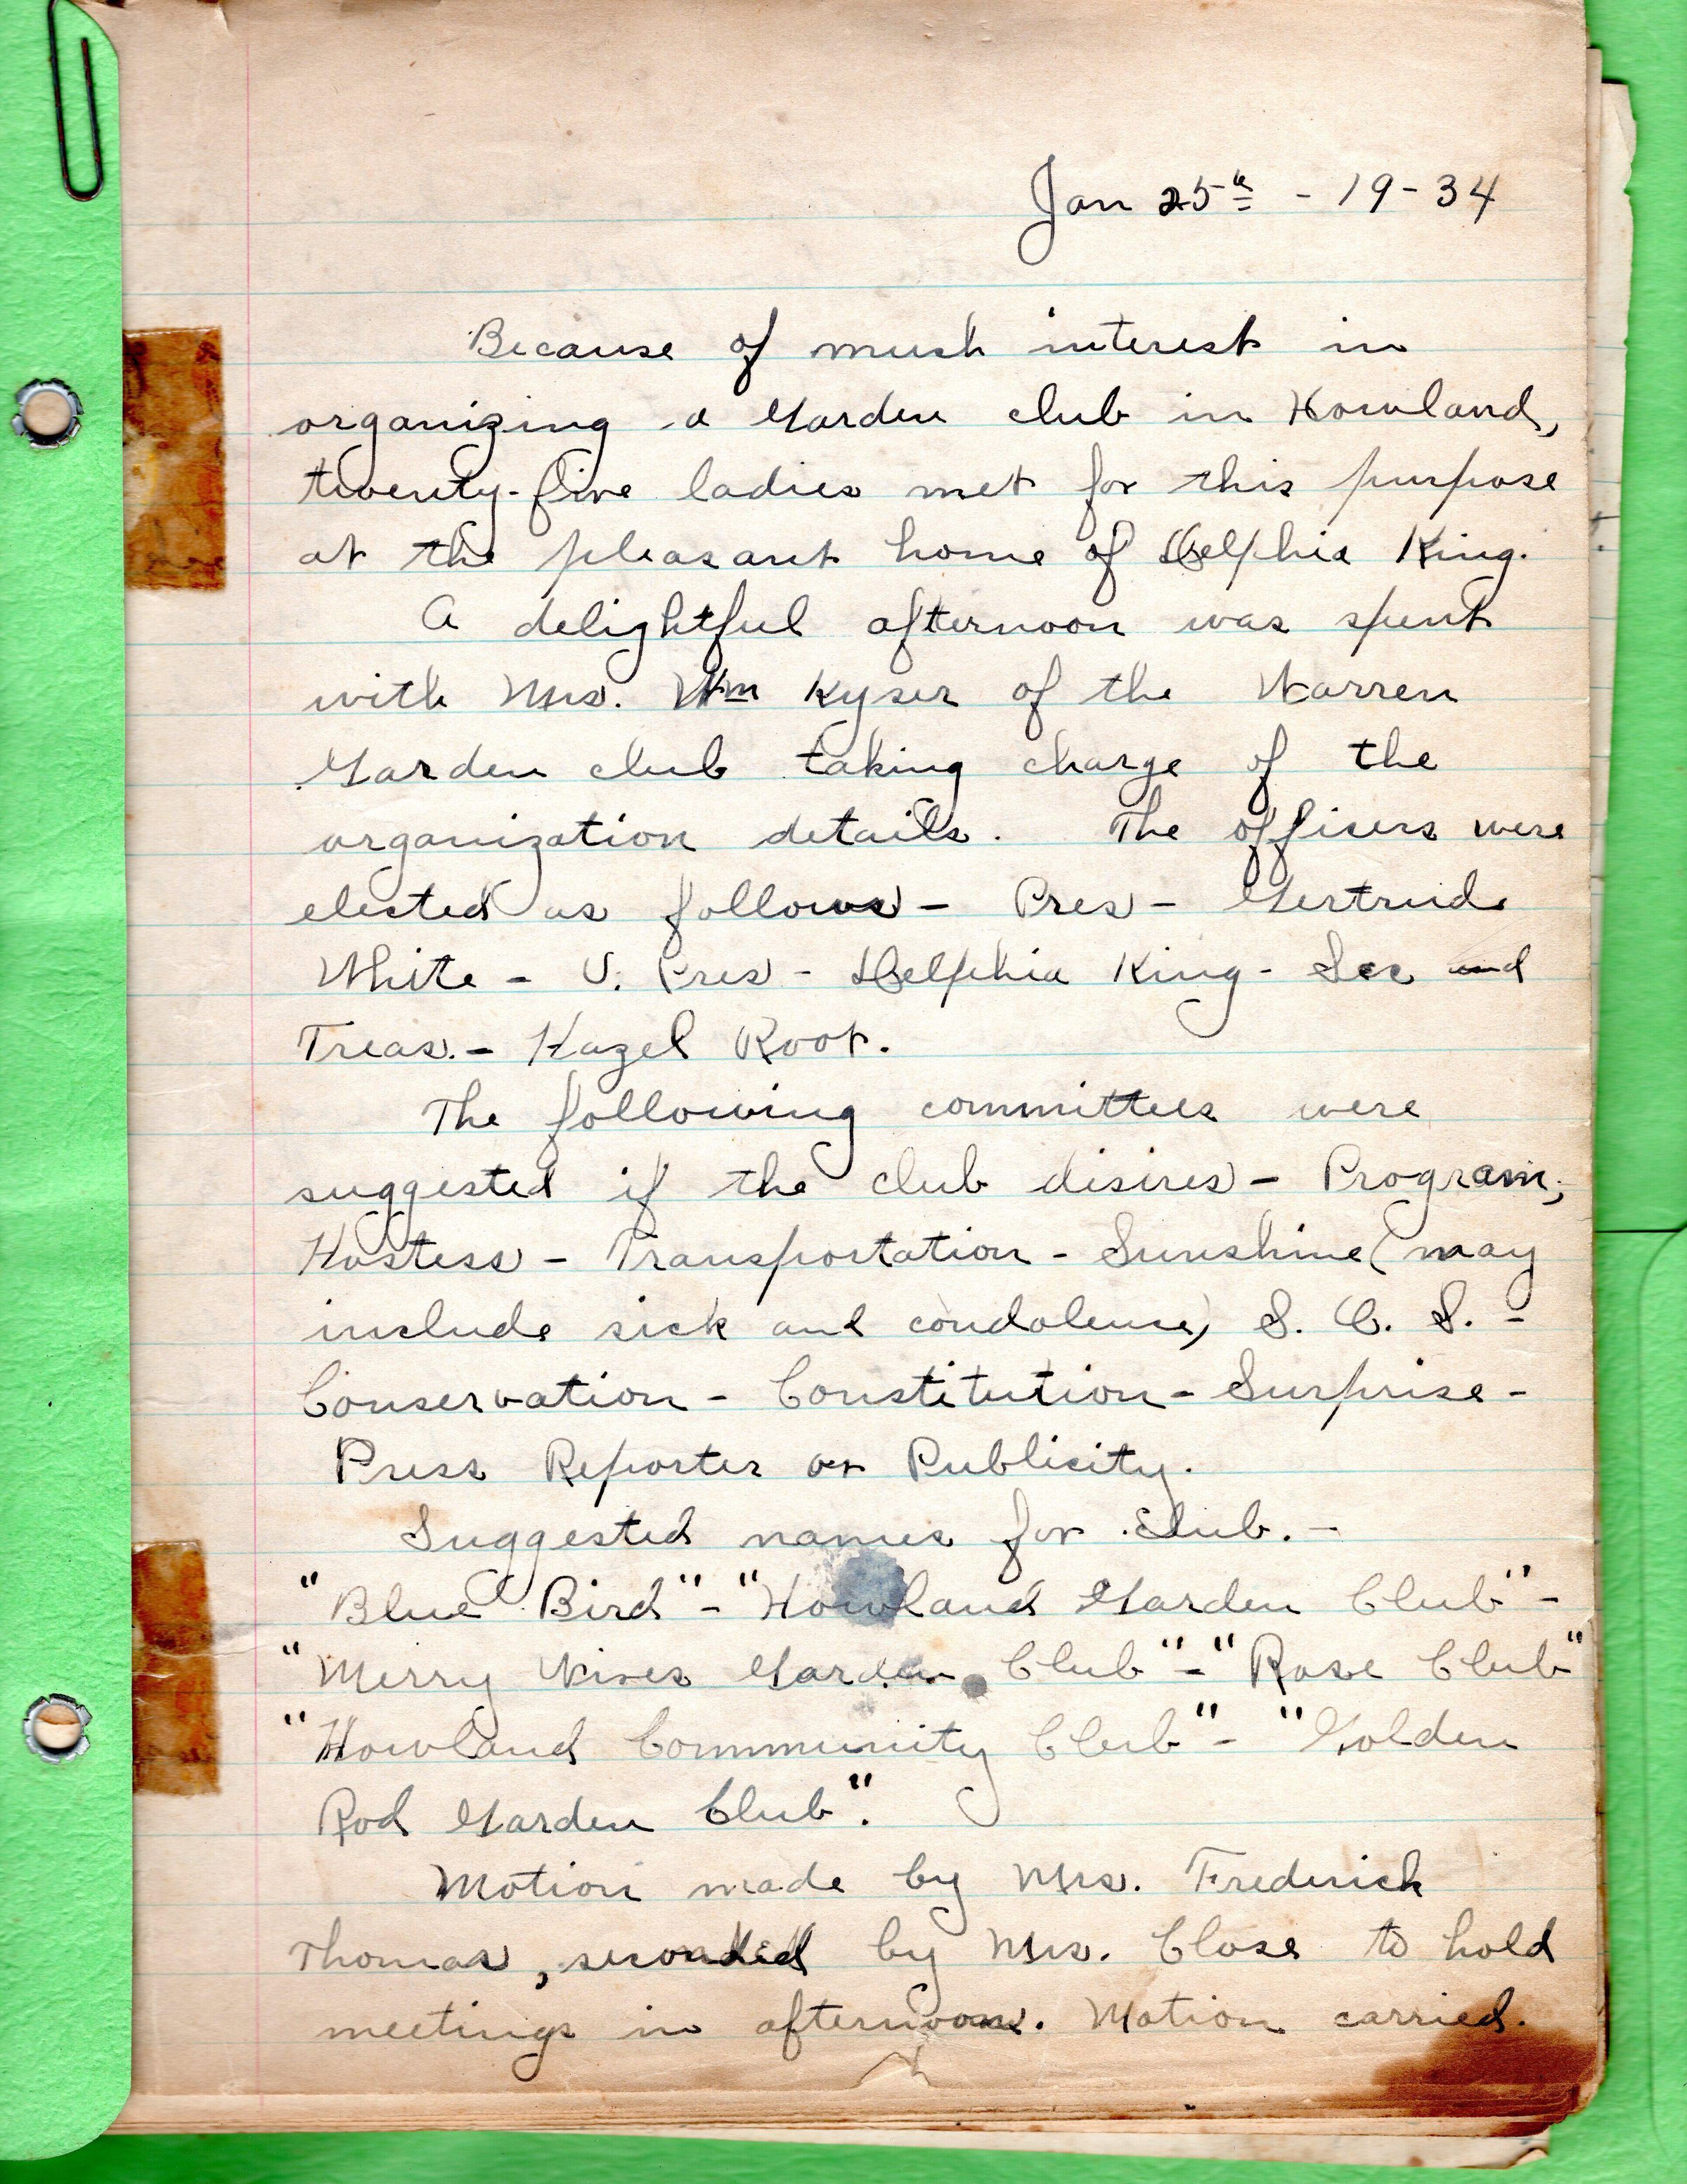 Jan 25th - 19-34
Because of much interest in
organizing a Garden club in Howland,
twenty-five ladies met for this purpose
at the pleasant home of Delphia King.
A delightful afternoon was spent
with Mrs. Wm Kyser of the Warren
Garden club taking charge of the
organization details. The officers were
elected as follows - Pres - Gertrude
White - V. Pres - Delphia King - Sec and
Treas. - Hazel Root.
The following committees were
suggested if the club disires - Program,
Hostess - Transportation - Sunshine (may
include sick and condolence) S. O. S. -
Conservation - Constitution - Surprise -
Press Reporter or Publicity.
Suggested names for club. -
"Blue Bird" - "Howland Garden Club" -
"Merry Wives Garden Club" - "Rose Club"
"Howland Community Club" - "Golden
Rod Garden Club".
Motion made by Mrs. Frederick
Thomas, seconded by Mrs. Close to hold
meetings in afternoon. Motion carried.